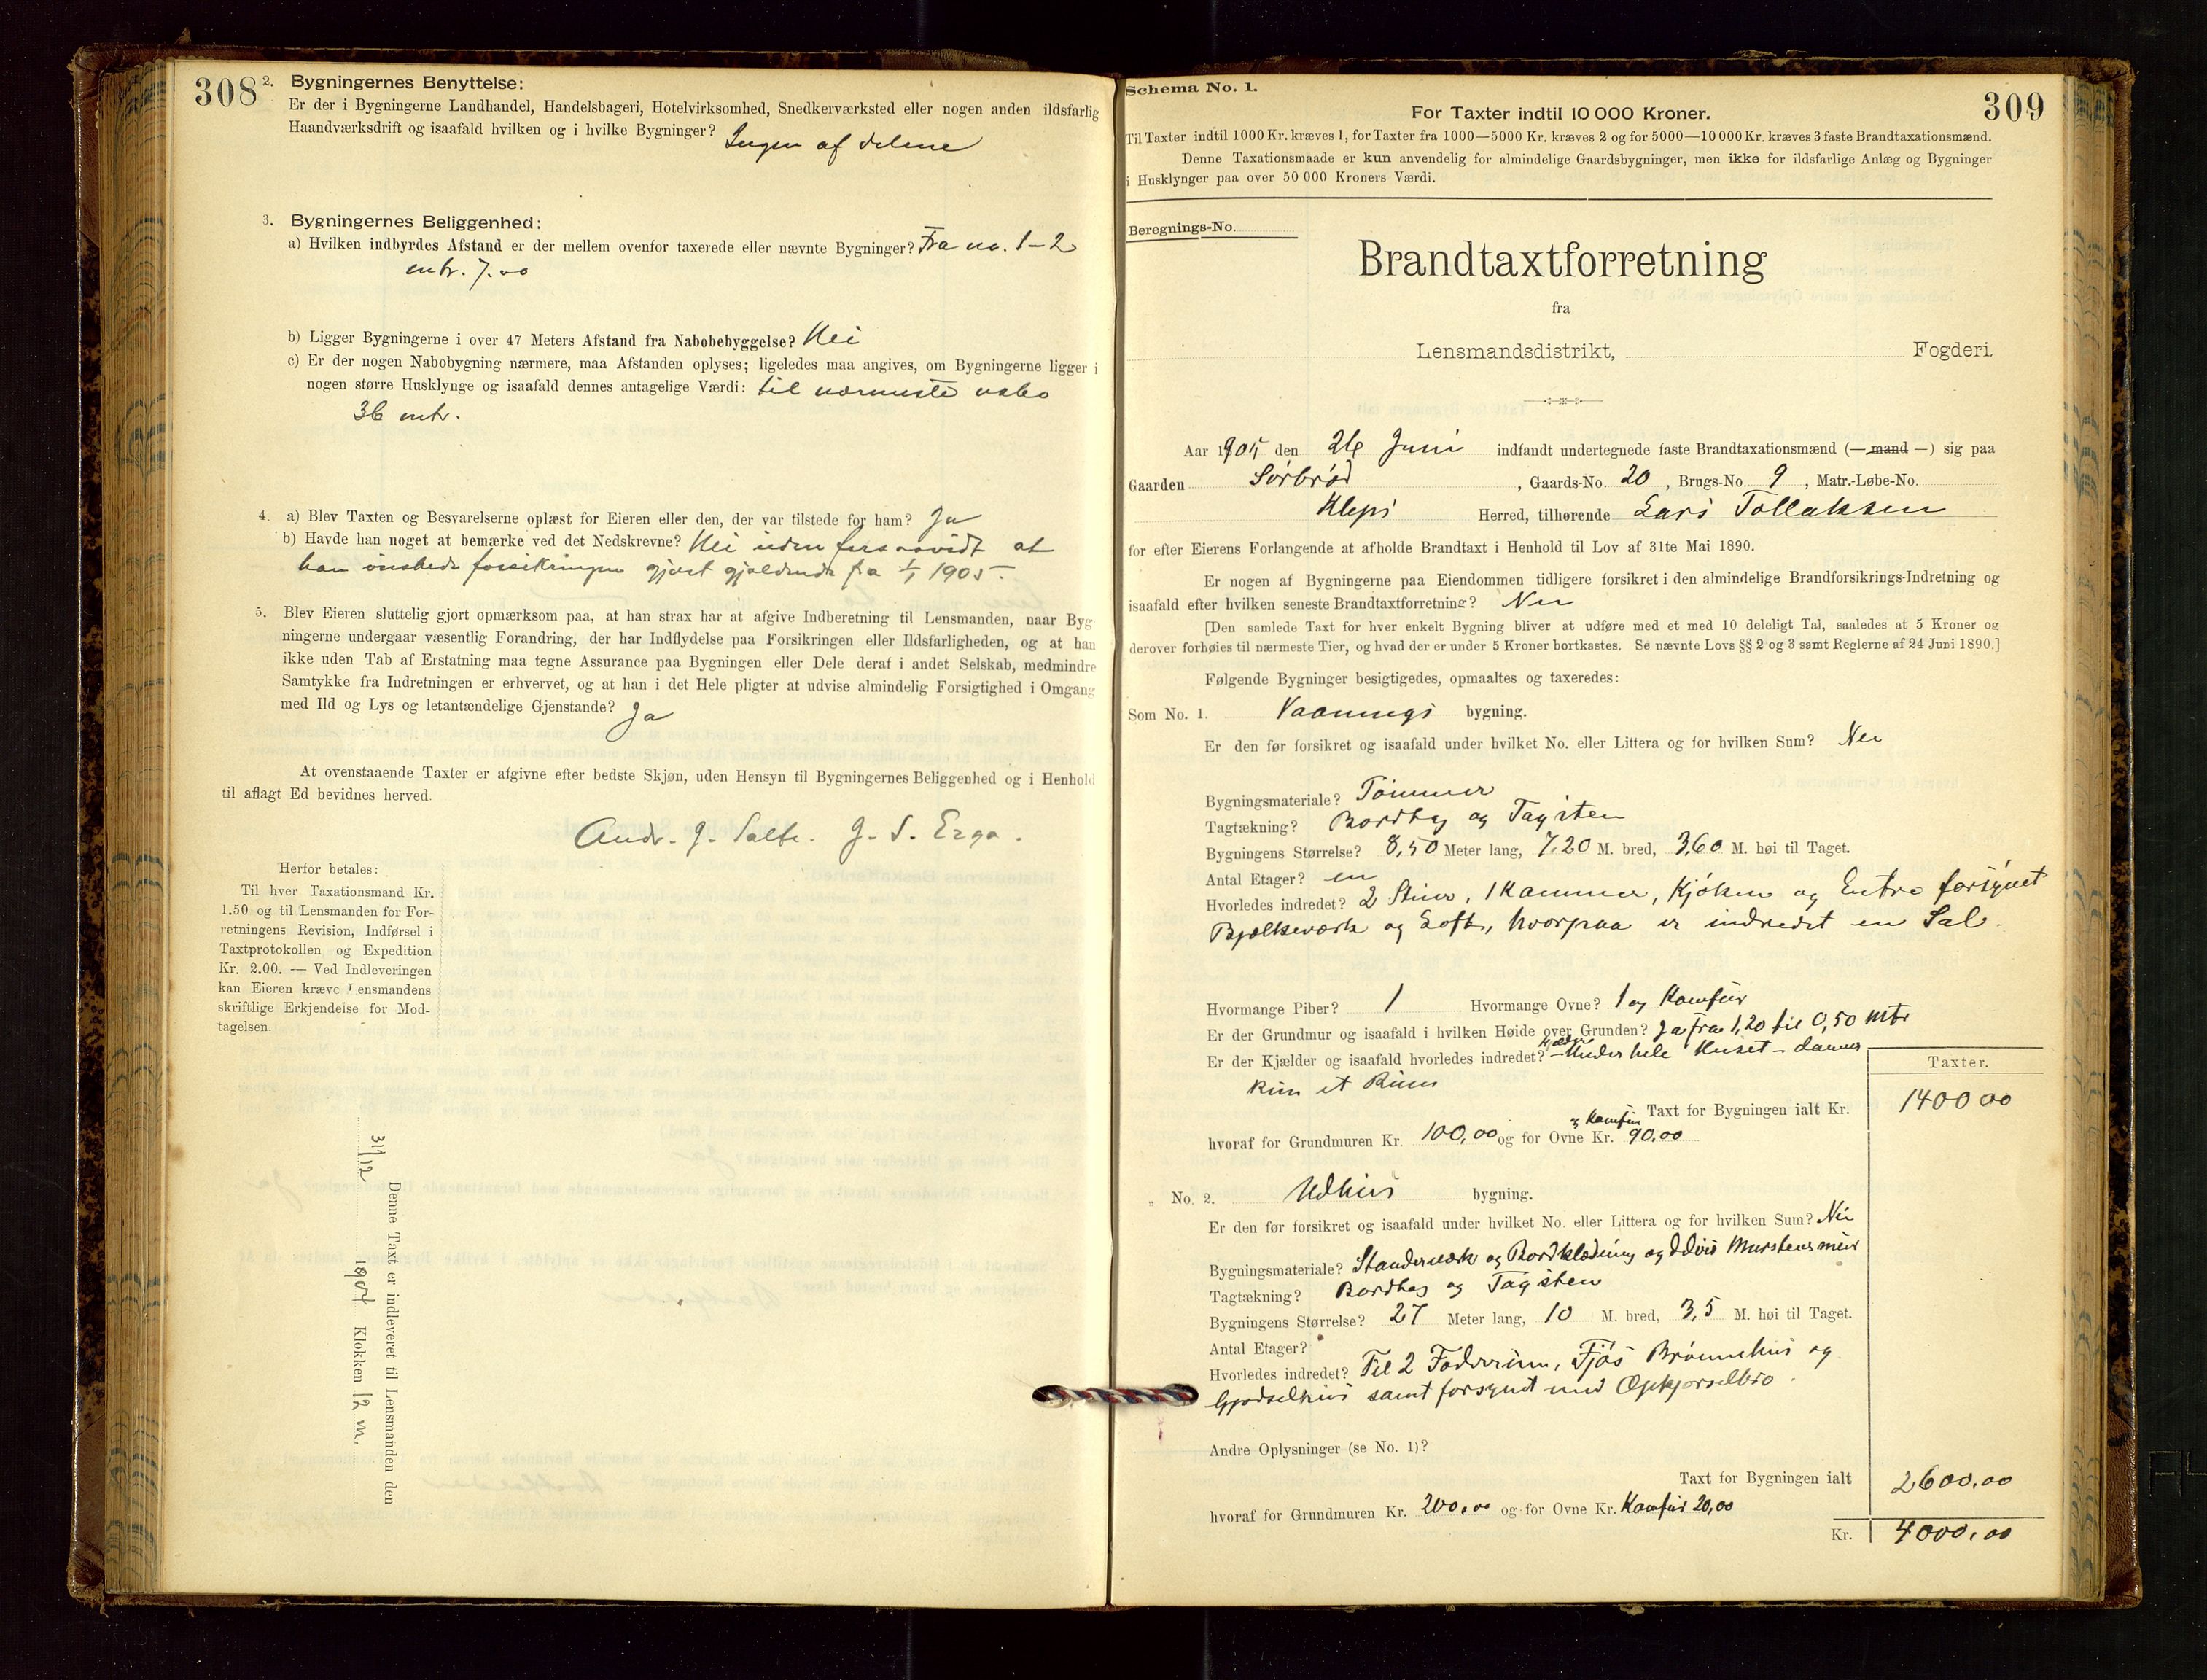 308
2. Bygningernes Benyttelse:
Er der i Bygningerne Landhandel, Handelsbageri, Hotelvirksomhed, Snedkerværksted eller nogen anden ildsfarlig
Haandværksdrift og isaafald hvilken og i hvilke Bygninger? Ingen af delene
3. Bygningernes Beliggenhed:
a) Hvilken indbyrdes Afstand er der mellem ovenfor taxerede eller nævnte Bygninger? Fra no. 1-2
mtr. 7.00
b) Ligger Bygningerne i over 47 Meters Afstand fra Nabobebyggelse? Nei
c) Er der nogen Nabobygning nærmere, maa Afstanden oplyses; ligeledes maa angives, om Bygningerne ligger i
nogen større Husklynge og isaafald dennes antagelige Værdi: til nærmeste nabo
36 mtr.
4. a) Blev Taxten og Besvarelserne oplæst for Eieren eller den, der var tilstede for ham? Ja
b) Havde han noget at bemærke ved det Nedskrevne? Nei uden forsaavidt at
han ønskede forsikringen gjort gjældende fra 1/7 1905.
5. Blev Eieren sluttelig gjort opmærksom paa, at han strax har at afgive Indberetning til Lensmanden, naar Byg
ningerne undergaar væsentlig Forandring, der har Indflydelse paa Forsikringen eller Ildsfarligheden, og at han
ikke uden Tab af Erstatning maa tegne Assurance paa Bygningen eller Dele deraf i andet Selskab, medmindre
Samtykke fra Indretningen er erhvervet, og at han i det Hele pligter at udvise almindelig Forsigtighed i Omgang
med Ild og Lys og letantændelige Gjenstande? Ja
At ovenstaaende Taxter er afgivne efter bedste Skjøn, uden Hensyn til Bygningernes Beliggenhed og i Henhold
til aflagt Ed bevidnes herved.
Andr. J. Salte. J. S. Erga.
Herfor betales:
Til hver Taxationsmand Kr.
1.50 og til Lensmanden for For-
retningens Revision, Indførsel i
Taxtprotokollen og Expedition
Kr. 2.00. — Ved Indleveringen
kan Eieren kræve Lensmandens
skriftlige Erkjendelse for Mod-
tagelsen.
Denne Taxt er indleveret til Lensmanden den
31/12 1907 Klokken 12 m.
309
Schema No. 1.
For Taxter indtil 10 000 Kroner.
Til Taxter indtil 1000 Kr. kræves 1, for Taxter fra 1000—5000 Kr. kræves 2 og for 5000—10 000 Kr. kræves 3 faste Brandtaxationsmænd.
Denne Taxationsmaade er kun anvendelig for almindelige Gaardsbygninger, men ikke for ildsfarlige Anlæg og Bygninger
i Husklynger paa over 50 000 Kroners Værdi.
Beregnings-No.
Brandtaxtforretning
fra
Lensmandsdistrikt, Fogderi.
Aar 1905 den 26 Juni indfandt undertegnede faste Brandtaxationsmænd (— mand —) sig paa
Gaarden Sørbrød, Gaards-No. 20, Brugs-No. 9, Matr.-Løbe-No.
Klepi Herred, tilhørende Lars Tollaksen
for efter Eierens Forlangende at afholde Brandtaxt i Henhold til Lov af 31te Mai 1890.
Er nogen af Bygningerne paa Eiendommen tidligere forsikret i den almindelige Brandforsikrings-Indretning og
isaafald efter hvilken seneste Brandtaxtforretning? Nei
[Den samlede Taxt for hver enkelt Bygning bliver at udføre med et med 10 deleligt Tal, saaledes at 5 Kroner og
derover forhøies til nærmeste Tier, og hvad der er under 5 Kroner bortkastes. Se nævnte Lovs §§ 2 og 3 samt Reglerne af 24 Juni 1890.]
Følgende Bygninger besigtigedes, opmaaltes og taxeredes:
Som No. 1. Vaanings bygning.
Er den før forsikret og isaafald under hvilket No. eller Littera og for hvilken Sum? Nei
Bygningsmateriale? Tømmer
Tagtækning? Bordtag og Tagsten
Bygningens Størrelse? 8,50 Meter lang, 7,20 M. bred, 3,60 M. høi til Taget.
Antal Etager? en
Hvorledes indredet? 2 Stuer, 1 Kammer, Kjøken og Entre forsynet
Bjelkeværk og Loft, hvorpaa er indredet en Sal.
Hvormange Piber? 1 Hvormange Ovne? 1 og Komfur
Er der Grundmur og isaafald i hvilken Høide over Grunden? Ja fra 1,20 til 0,50 Mtr
Er der Kjælder og isaafald hvorledes indredet? Kjælder – Under hele Huset – danner
kun et Rum
Taxter.
Taxt for Bygningen ialt Kr. 1400 00
hvoraf for Grundmuren Kr. 100,00 og for Ovne og Komfur Kr. 90,00
" No. 2. Udhus bygning.
Er den før forsikret og isaafald under hvilket No. eller Littera og for hvilken Sum? Nei
Bygningsmateriale? Standerværk og Bordklædning og delvis Murstensmur
Tagtækning? Bordtag og Tagsten
Bygningens Størrelse? 27 Meter lang, 10 M. bred, 3,5 M. høi til Taget.
Antal Etager?
Hvorledes indredet? Til 2 Foderrum, Fjøs Brønnhus og
Gjødselhus samt forsynet med Opkjørselbro.
Andre Oplysninger (se No. 1)?
Taxt for Bygningen ialt 2600,00
hvoraf for Grundmuren Kr. 200,00 og for Ovne Kr. Komfur 20,00
Kr. 4000,00